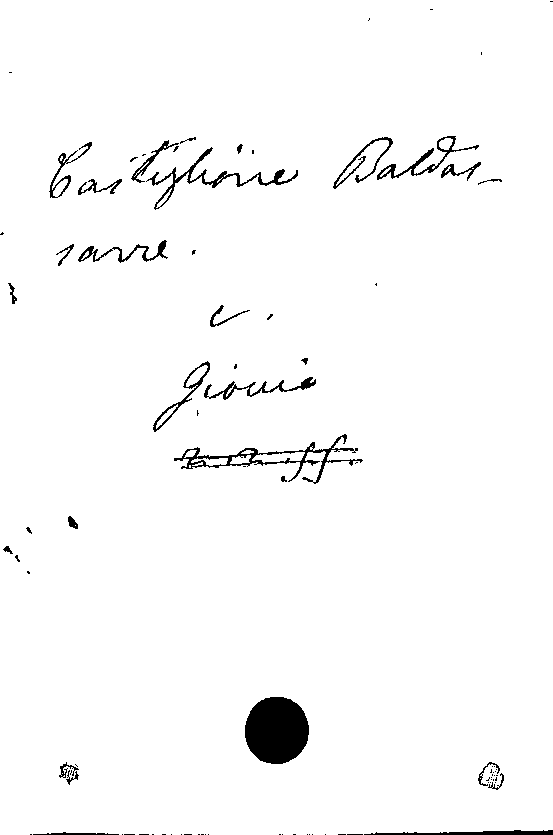 Castiglione Baldas-
sarre.
v.
Giovio